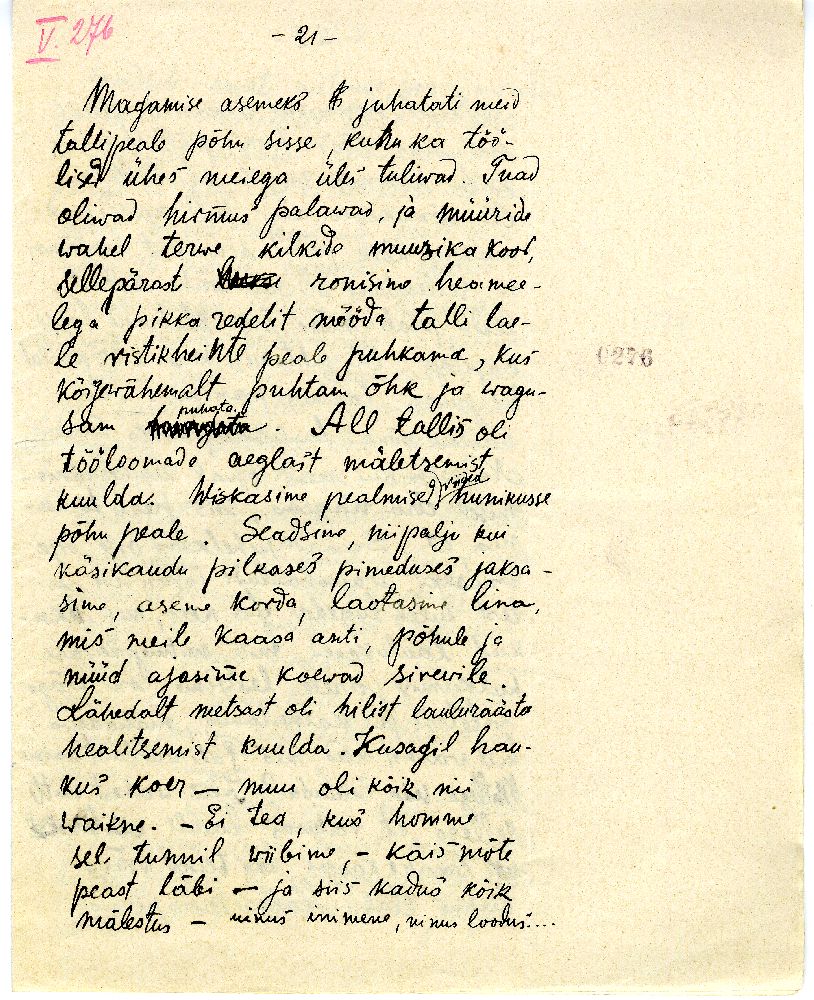 V. 276
- 21 -
Magamise asemeks juhatati meid
tallipeale põhu sisse, kuhu ka töö-
lised ühes meiega üles tuliwad. Toad
oliwad hirmus palawad, ja müüride
wahel terwe kilkide muusika koor,
sellepärast ronisime heamee-
lega pikka redelit mööda talli lae-
le ristikheinte peale puhkama, kus
kõigewähemalt puhtam õhk ja wagu-
sam puhata. All tallis oli
tööloomade aeglast mäletsemist
kuulda. Wiskasime pealmised riided hunikusse
põhu peale. Seadsime, niipalju kui
käsikaudu pilkases pimeduses jaksa-
sime, aseme korda, laotasime lina,
mis meile kaasa anti, põhule ja
nüüd ajasime koewad sirewile.
Lähedalt metsast oli hilist laulurästa
healitsemist kuulda. Kusagil hau-
kus koer — muu oli kõik nii
waikne. - Ei tea, kus homme
sel tunnil wiibime, - käis mõte
peast läbi — ja siis kadus kõik
mälestus - uinus inimene, uinus loodus...
0276